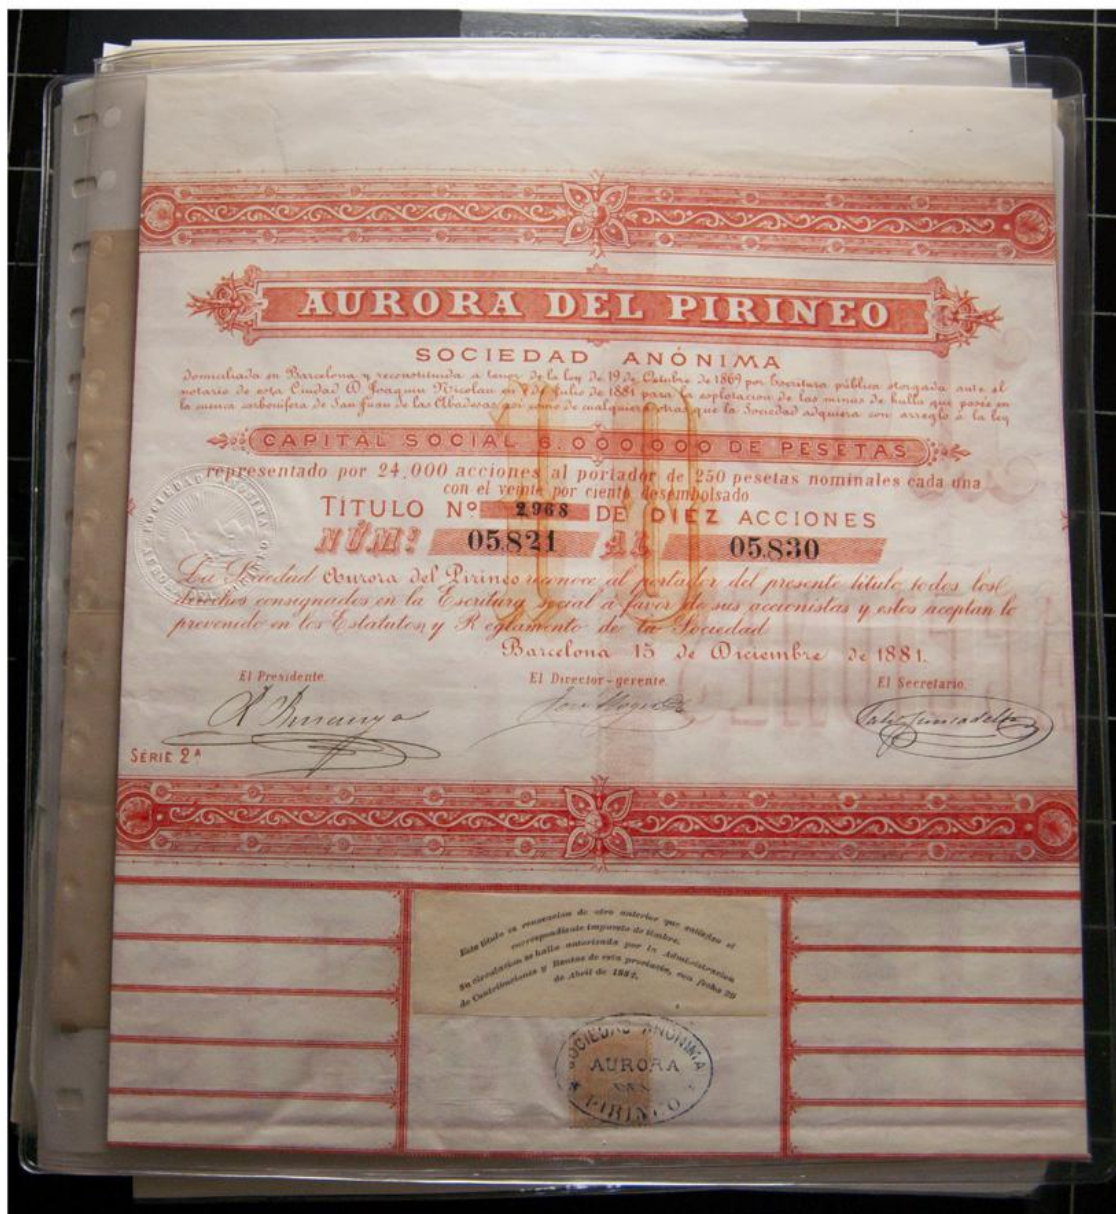 AURORA DEL PIRINEO
SOCIEDAD ANÓNIMA
domiciliada en Barcelona y reconstituida a tenor de la ley de 19 de Octubre de 1869 por Escritura pública otorgada ante el
notario de esta Ciudad D Joaquin Nicolau en 7 de Julio de 1881 para la esplotacion de las minas de hulla que posée en
la cuenca carbonífera de San Juan de las Abadesas asi como de cualquiera otras que la Sociedad adquiera con arreglo á la ley
CAPITAL SOCIAL 6.000.000 DE PESETAS
representado por 24.000 acciones al portador de 250 pesetas nominales cada una
con el veinte por ciento desembolsado
TÍTULO Nº 2968 DE DIEZ ACCIONES
NÚM! 05.821 AL 05.830
10
La Sociedad Aurora del Pirineo reconoce al portador del presente título todos los
derechos consignados en la Escritura social á favor de sus accionistas y estos aceptan lo
prevenido en los Estatutos y Reglamento de la Sociedad
Barcelona 15 de Diciembre de 1881.
El Presidente.
El Director-gerente.
El Secretario.
SÉRIE 2ª
Este título es renovacion de otro anterior que satisfizo el
correspondiente impuesto de timbre.
Su circulacion se halla autorizada por la Administracion
de Contribuciones y Rentas de esta provincia, con fecha 29
de Abril de 1882.
SOCIEDAD ANÓNIMA
AURORA
DEL
PIRINEO